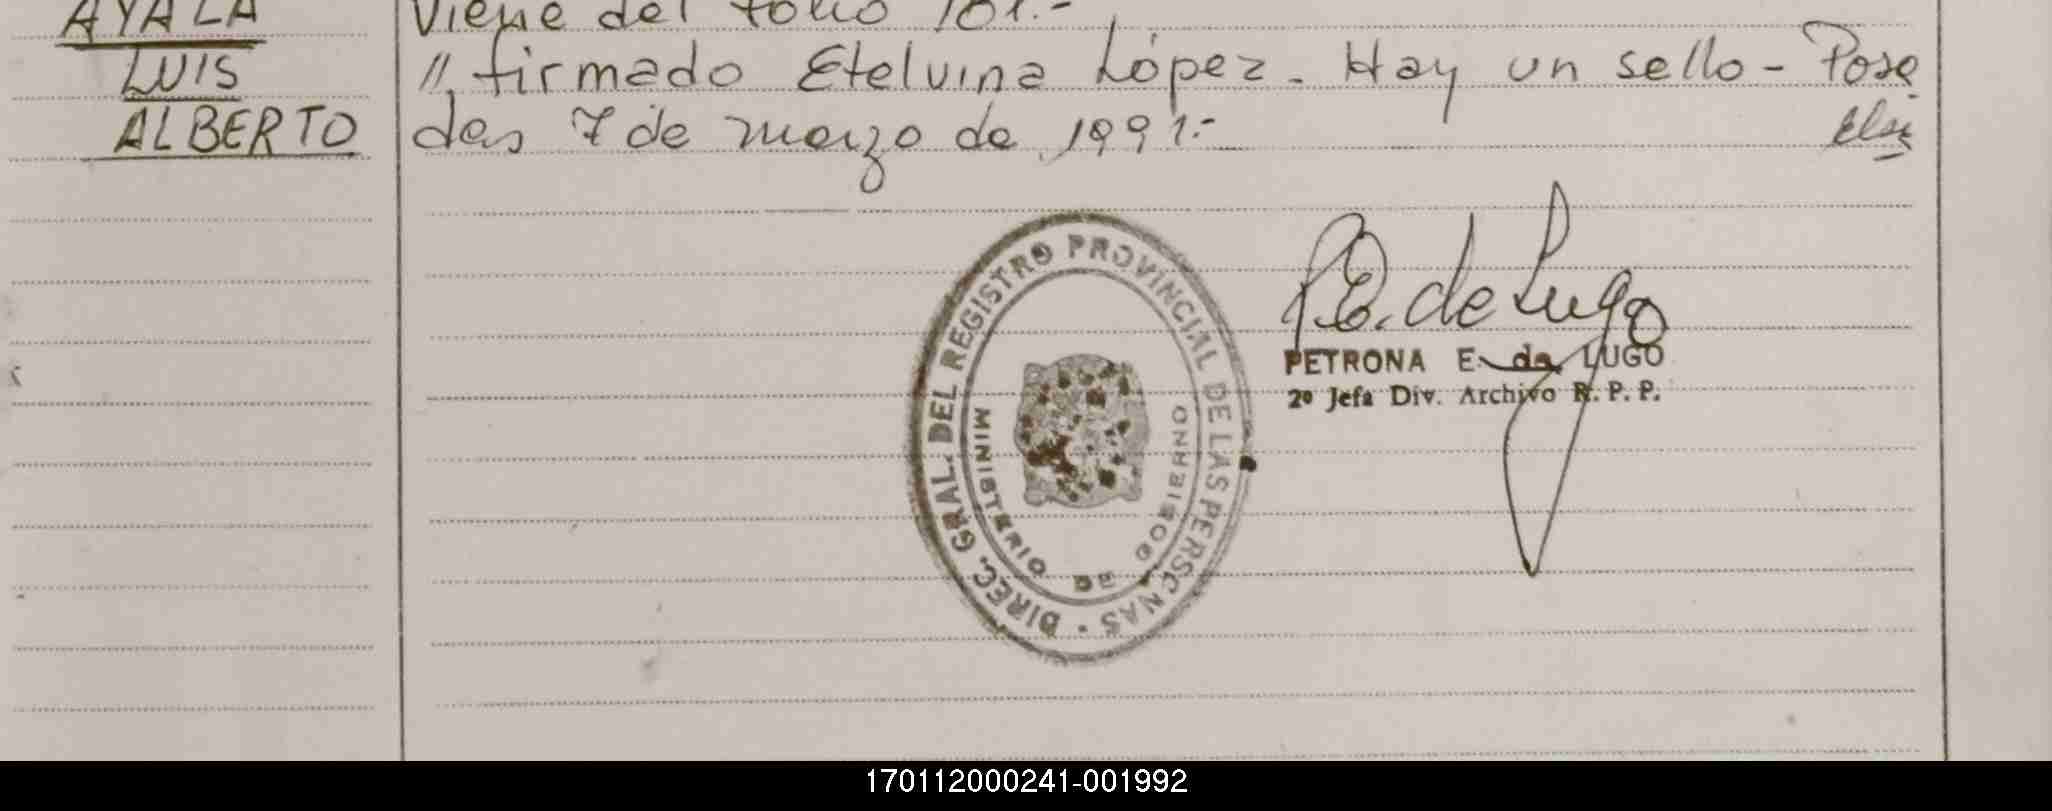 AYALA
LUIS
ALBERTO
Viene del folio 101.-
// firmado Etelvina López - Hay un sello - Posa
das 7 de marzo de 1991.-
DIREC. GRAL. DEL REGISTRO PROVINCIAL DE LAS PERSONAS
MINISTERIO DE GOBIERNO
P.E. de Lugo
PETRONA E. de LUGO
2º Jefa Div. Archivo R. P. P.
170112000241-001992